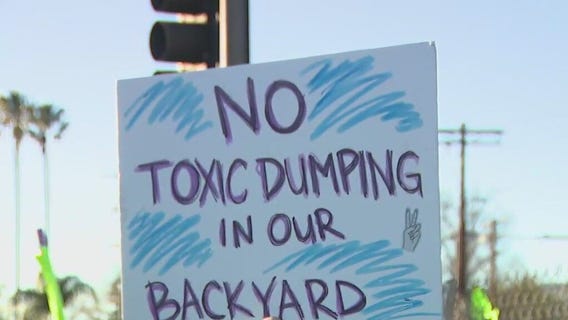 NO
TOXIC DUMPING
IN OUR
BACKYARD